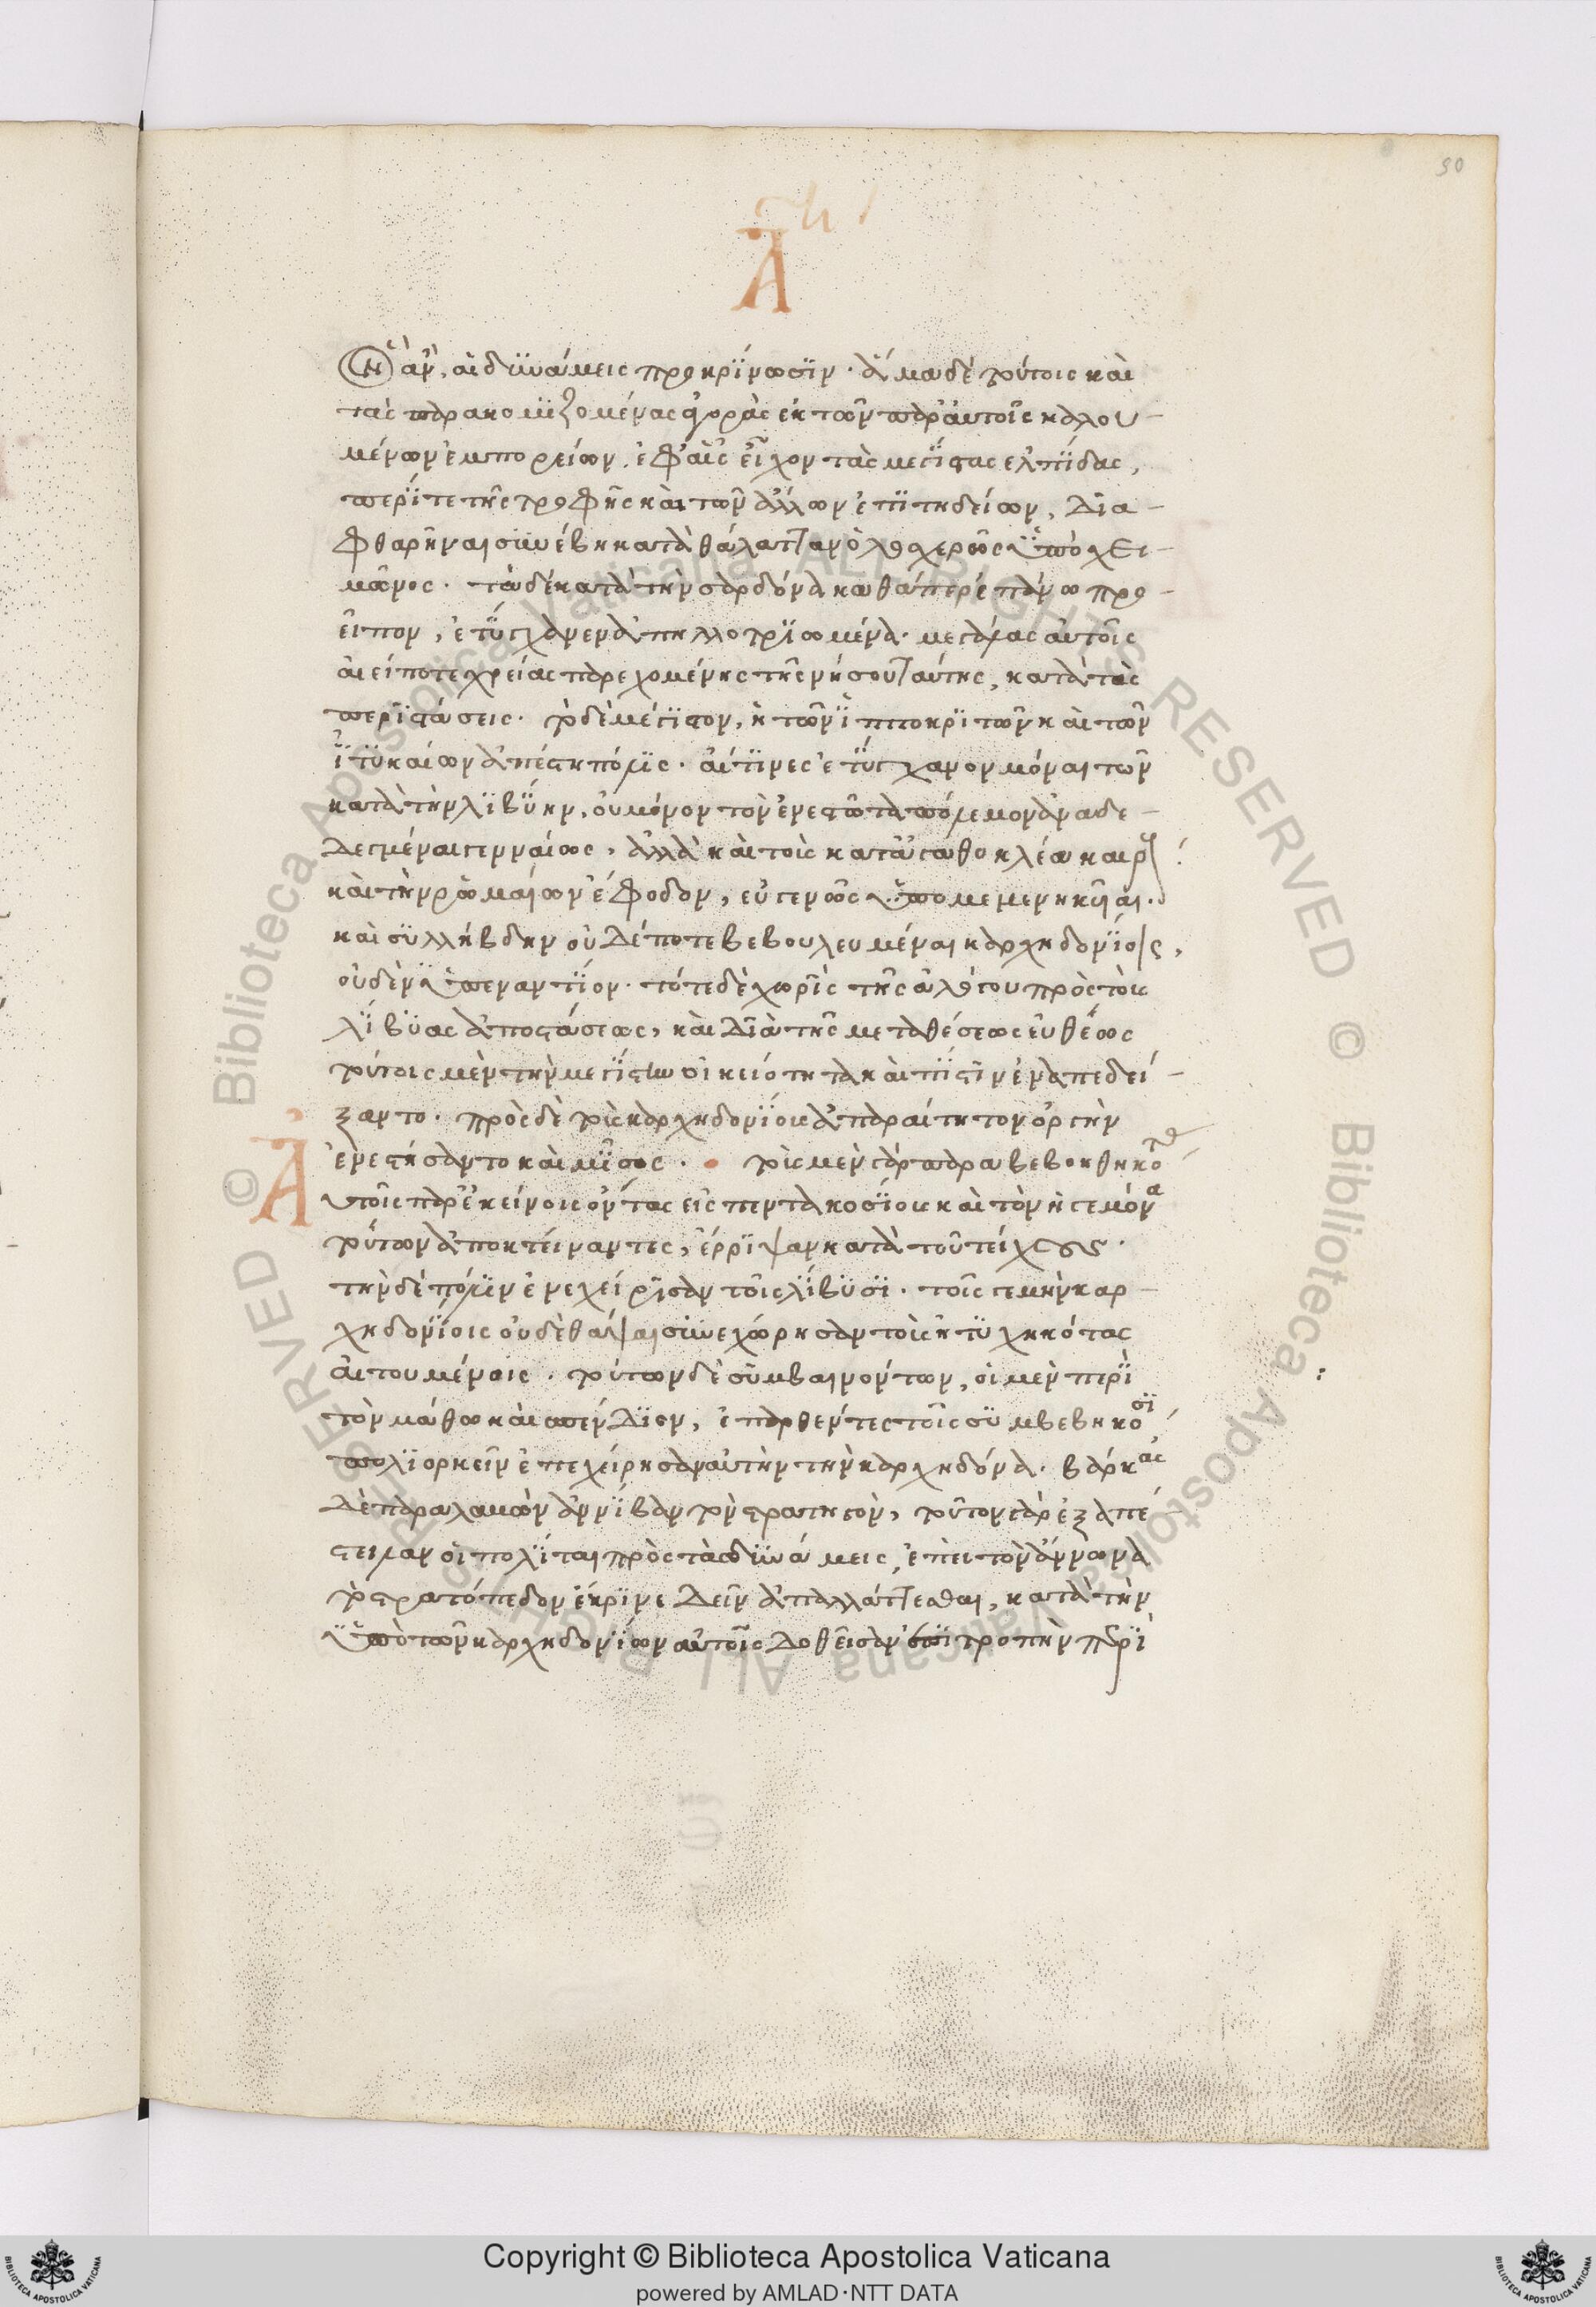 90
Α
ὃν ἂν, αἱ δυνάμεις προκρίνωσιν· ἅμα δὲ τούτοις καὶ
τὰς παρακομιζομένας ἀγορὰς ἐκ τῶν παρ' αὐτοῖς καλου-
μένων ἐμπορείων, ἐφ' αἷς εἶχον τὰς μεγίστας ἐλπίδας,
περί τε τῆς τροφῆς καὶ τῶν ἄλλων ἐπιτηδείων, δια-
φθαρῆναι συνέβη κατὰ θάλατταν ὁλοχερῶς ὑπὸ χει-
μῶνος. τὰ δὲ κατὰ τὴν σαρδόνα καθάπερ ἐπάνω προ-
εῖπον, ἐτύγχανεν ἀπηλλοτριωμένα· μεγάλας αὐτοῖς
αἰεί ποτε χρείας παρεχομένης τῆς νήσου ταύτης, κατὰ τὰς
περιστάσεις. τὸ δὲ μέγιστον, ἡ τῶν ἱπποκριτῶν καὶ τῶν
ἰτυκαίων ἀπέστη πόλις. αἵτινες ἐτύγχανον μόναι τῶν
κατὰ τὴν λιβύην, οὐ μόνον τὸν ἐνεστῶτα πόλεμον ἀναδε-
δεγμέναι γενναίως, ἀλλὰ καὶ τοῖς κατ' ἀγαθοκλέα καιροῖς
καὶ τὴν ῥωμαίων ἔφοδον, εὐγενῶς ὑπομεμενηκυῖαι.
καὶ συλλήβδην οὐδέποτε βεβουλευμέναι καρχηδονίοις,
οὐδὲν ὑπεναντίον. τότε δὲ χωρὶς τῆς ἀλόγου πρὸς τοὺς
λίβυας ἀποστάσεως, καὶ διὰ τῆς μεταθέσεως εὐθέως
τούτοις μὲν τὴν μεγίστην οἰκειότητα καὶ πίστιν ἐναπεδεί-
ξαντο. πρὸς δὲ τοὺς καρχηδονίους ἀπαραίτητον ὀργὴν
ἐνεστήσαντο καὶ μῖσος. τοὺς μὲν γὰρ παραβεβοηθηκότας
Α
υτοῖς παρ' ἐκείνοις ὄντας εἰς πεντακοσίους καὶ τὸν ἡγεμόνα
τούτων ἀποκτείναντες, ἔρριψαν κατὰ τοῦ τείχους.
τὴν δὲ πόλιν ἐνεχείρισαν τοῖς λίβυσι. τοῖς γε μὴν καρ-
χηδονίοις οὐδὲ θάψαι συνεχώρησαν τοὺς ἠτυχηκότας
αἰτουμένοις. τούτων δὲ συμβαινόντων, οἱ μὲν περὶ
τὸν μάθω καὶ σπένδιον, ἐπαρθέντες τοῖς συμβεβηκόσι
πολιορκεῖν ἐπεχείρησαν αὐτὴν τὴν καρχηδόνα. βάρκας
δὲ παραλαβὼν ἀννίβαν τὸν στρατηγὸν, τοῦτον γὰρ ἐξαπέ-
στειλαν οἱ πολίται πρὸς τὰς δυνάμεις, ἐπεὶ τὸν ἄννωνα
τὸ στρατόπεδον ἔκρινε δεῖν ἀπαλλάττεσθαι, κατὰ τὴν
ὑπὸ τῶν καρχηδονίων αὐτοῖς δοθεῖσαν ἐπιτροπὴν περὶ
Copyright © Biblioteca Apostolica Vaticana
powered by AMLAD·NTT DATA